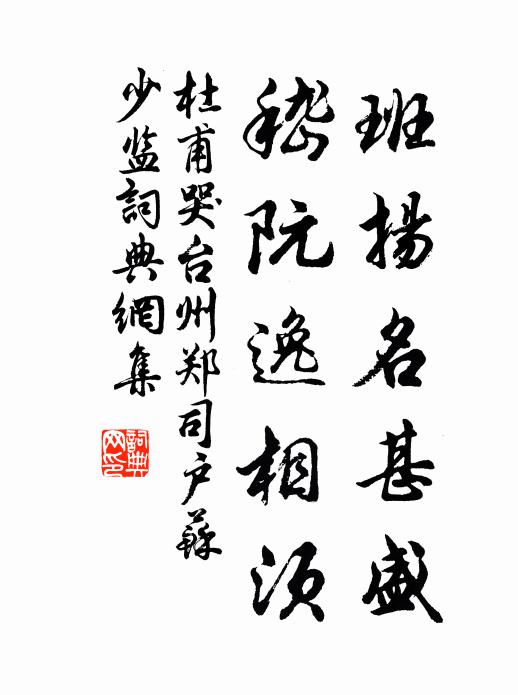 班揚名甚盛
嵇阮逸相須
杜甫哭台州郑司户蘇
少监詞典網集
詞典
网印